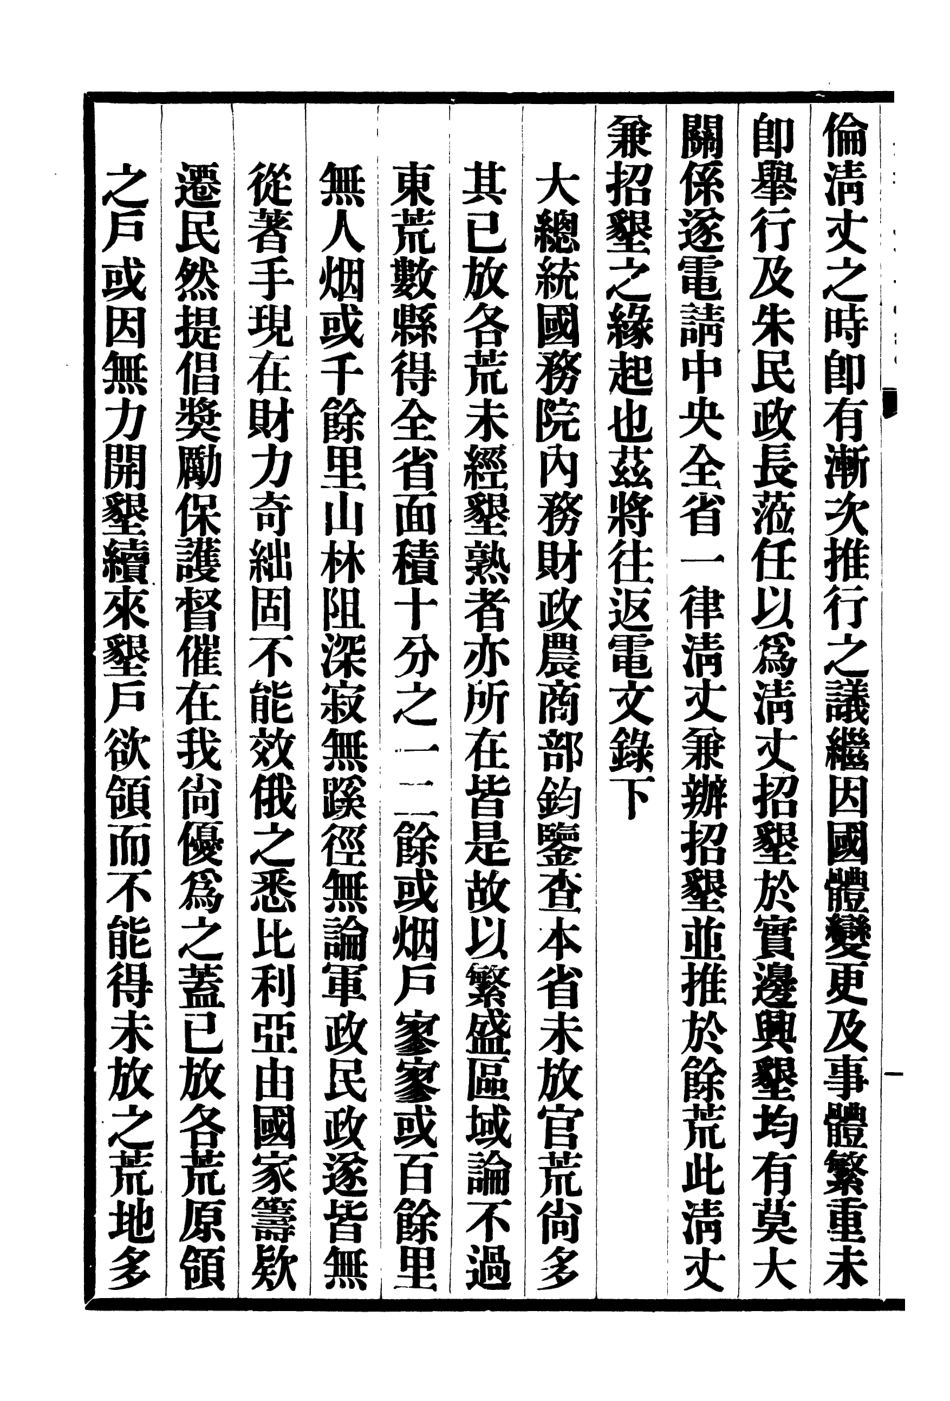 倫淸丈之時卽有漸次推行之議繼因國體變更及事體繁重未
卽舉行及朱民政長蒞任以爲淸丈招墾於實邊興墾均有莫大
關係遂電請中央全省一律淸丈兼辦招墾並推於餘荒此淸丈
兼招墾之緣起也茲將往返電文錄下
大總統國務院內務財政農商部鈞鑒查本省未放官荒尙多
其已放各荒未經墾熟者亦所在皆是故以繁盛區域論不過
東荒數縣得全省面積十分之一二餘或烟戶寥寥或百餘里
無人烟或千餘里山林阻深寂無蹊徑無論軍政民政遂皆無
從著手現在財力奇絀固不能效俄之悉比利亞由國家籌欵
遷民然提倡奬勵保護督催在我尙優爲之蓋已放各荒原領
之戶或因無力開墾續來墾戶欲領而不能得未放之荒地多